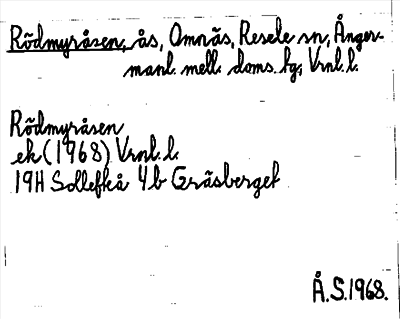 Rödmyråsen, ås, Omnäs, Resele sn, Ånger-
manl. mell. doms. hg, Vrnl. l.
Rödmyråsen
ek (1968) Vrnl. l.
19H Sollefteå 4b Gräsberget
Å.S.1968.